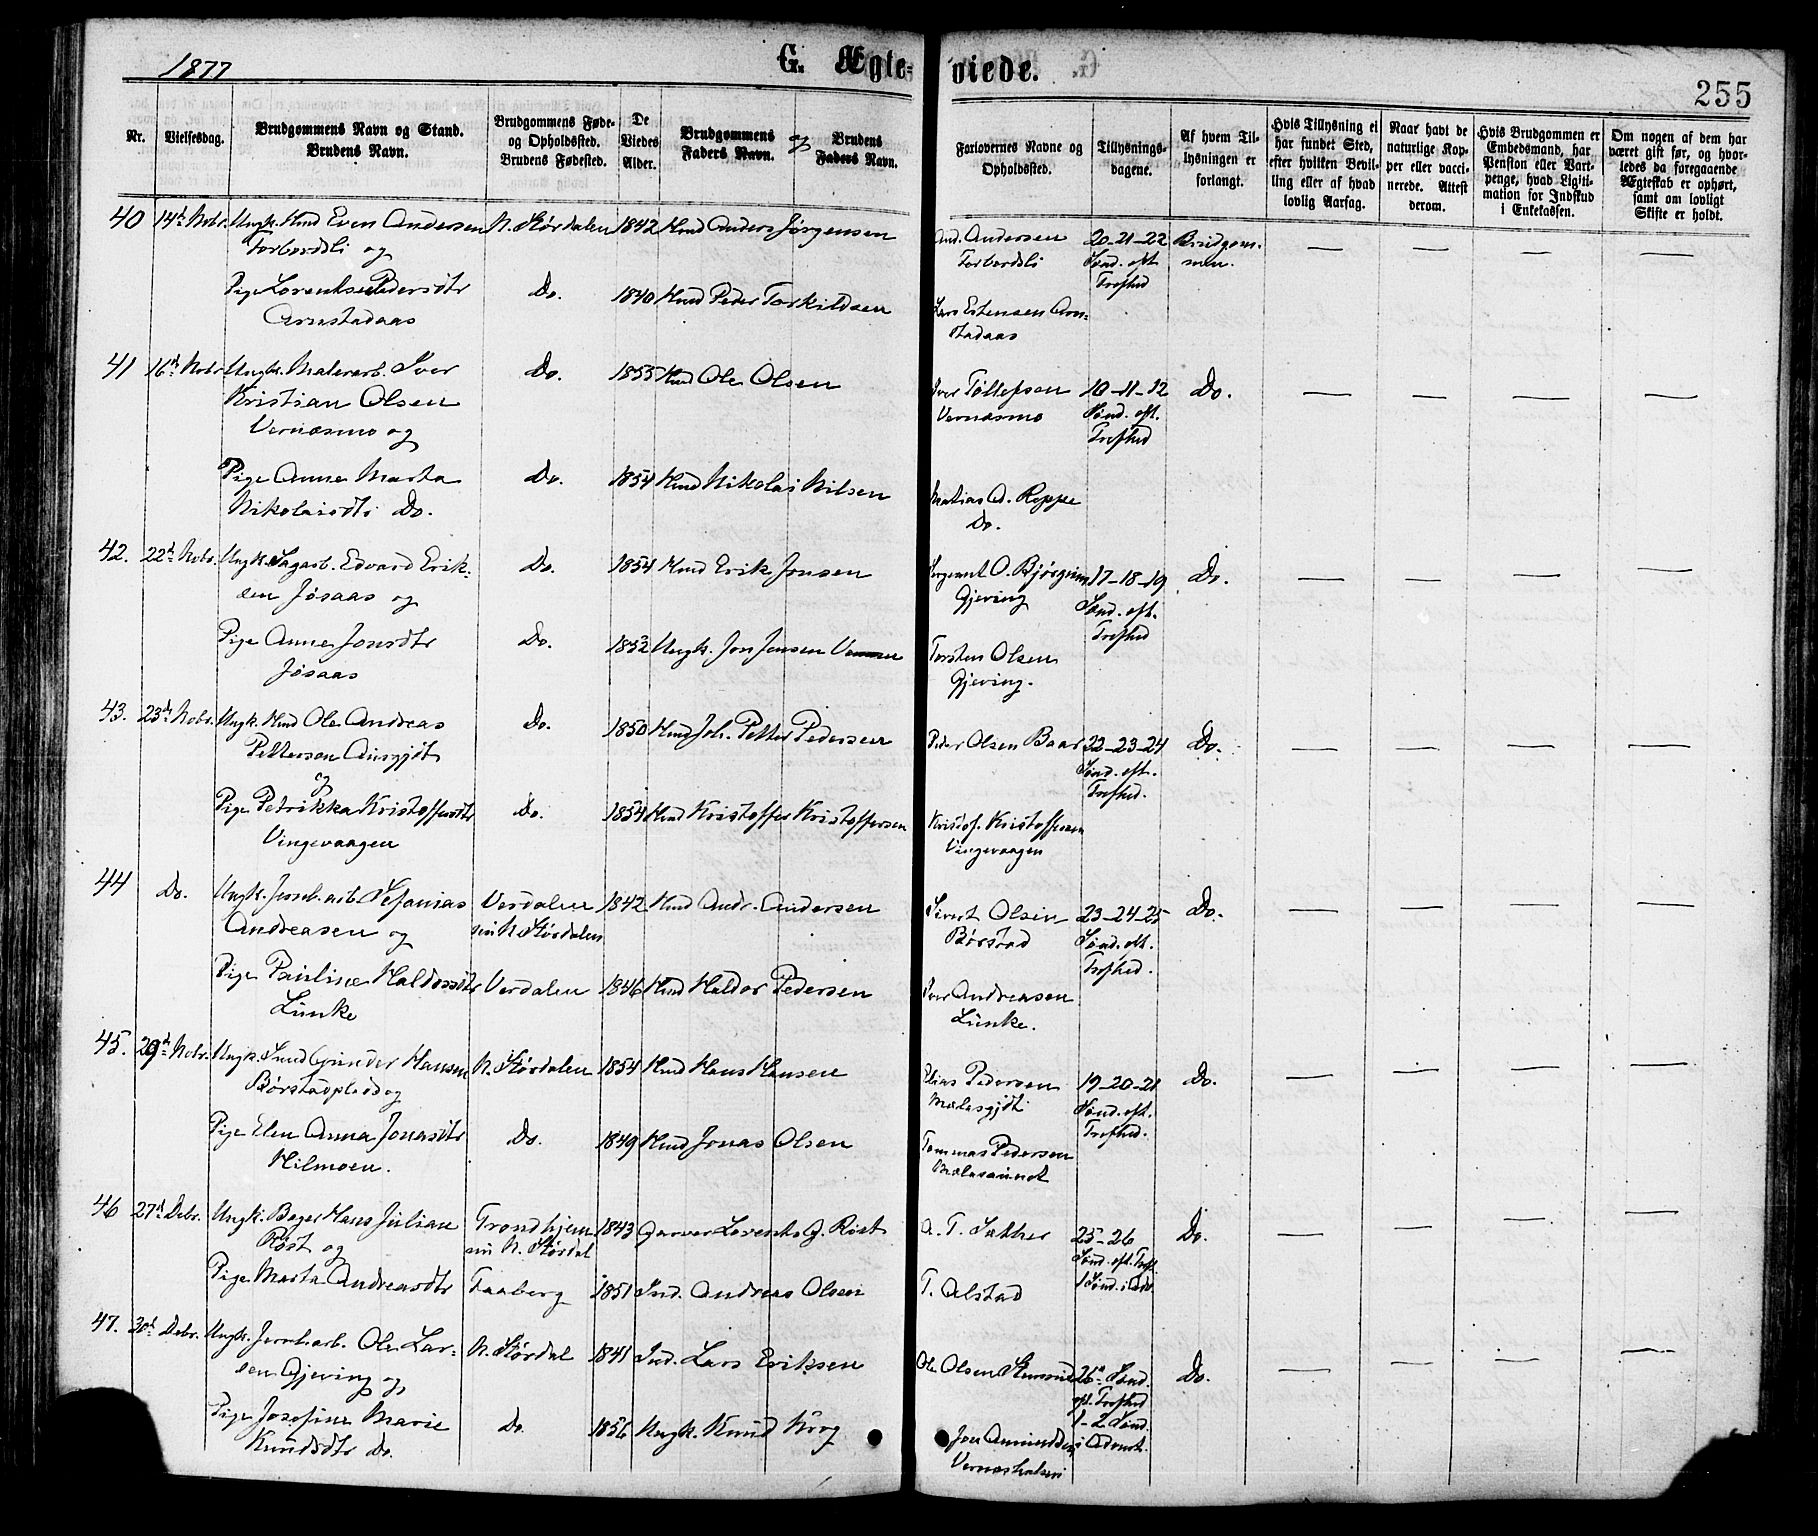 1877
G. Ægte-
viede.
255
Nr.
Vielsesdag.
Brudgommens Navn og Stand.
Brudens Navn.
Brudgommens Føde-
og Opholdssted.
Brudens Fødested.
De
Viedes
Alder.
Brudgommens
Faders Navn.
og
Brudens
Faders Navn.
Forlovernes Navne og
Opholdssted.
Tillysnings-
dagene.
Af hvem Til-
lysningen er
forlangt.
Hvis Tillysning ei
har fundet Sted,
efter hvilken Bevil-
ling eller af hvad
lovlig Aarsag.
Naar havt de
naturlige Kop-
per eller vacci-
nerede. Attest
derom.
Hvis Brudgommen er
Embedsmand, har
Pension eller Vart-
penge, hvad Ligiti-
mation for Indskud
i Enkekassen.
Om nogen af dem har
været gift før, og hvor-
ledes da foregaaende
Ægteskab er ophørt,
samt om lovligt
Skifte er holdt.
40 14de Nobr. Ungk. Hmd Even Andersen N. Størdalen 1842 Hmd Anders Jørgensen And. Andersen 20-21-22 Brudgom-
Forbordsli og Forbordsli Sønd. eft. men.
Trefhed
Pige Lorentse Pedersdtr Do. 1840 Hmd Peder Torkildsen Lars Estensen Arn-
Arnstadaas stadaas
41 16de Nobr Ungk. Malerarb. Iver Do. 1855 Hmd Ole Olsen Iver Tollefsen 10-11-12 Do.
Kristian Olsen Vernæsmo Sønd. eft.
Vernæsmo og Trefhed
Pige Anne Marta Do. 1854 Hmd Nikolai Nilsen Matias A. Roppe
Nikolaisdtr Do. Do.
42. 22de Nobr. Ungk. Sagarb. Edvard Erik- Do. 1854 Hmd Erik Jonsen Sergeant O. Bjørgum 17-18-19 Do.
sen Jøsaas og Gjeving Sønd. eft.
Trefhed
Pige Anne Jonsdtr Do. 1852 Ungk. Jon Jensen Torsten Olsen
Jøsaas Gjeving.
43. 23de Nobr. Ungk. Hmd Ole Andreas Do. 1850 Hmd Joh. Petter Pedersen Peder Olsen Baar 22-23-24 Do.
Pettersen Sønd. eft.
og Trefhed.
Pige Petrikka Kristoffersdtr Do. 1854 Hmd Kristoffer Kristoffersen Kristof. Kristoffersen
Vingevaagen Vingevaagen
44 Do. Ungk. Jernb. arb. Sefanias Verdalen 1842 Hmd Andr. Andersen Sivert Olsen 23-24-25 Do.
Andreasen og N. Størdalen Børstad Sønd. eft.
Trefhed.
Pige Pauline Haldorsdtr Verdalen 1846 Hmd Haldor Pedersen Iver Andreasen
Lunke Lunke.
45. 29de Nobr. Ungk. Smed Gunder Hansen N. Størdalen 1854 Hmd Hans Hansen Elias Pedersen 19-20-21 Do.
Børstadplads og Sønd. eft.
Trefhed.
Pige Elen Anna Jonasdtr Do. 1849 Hmd Jonas Olsen Tommas Pedersen
Hilmoen.
46 27de Debr. Ungk. Bager Hans Julian Trondhjem 1843 Garver Lorents G. Røst A. T. Sakker 25-26 Do.
Røst og N. Størdal Sønd. eft. Tref.
1 Sønd. i Adv.
Pige Marta Andreasdtr Faaberg 1851 Ind. Andreas Olsen T. Alstad
47. 30de Debr. Ungk. Jernb. arb. Ole Lar- N. Størdal 1841 Ind. Lars Eriksen Ole Olsen 26de Sønd. Do.
sen Gjeving og eft. Trefhed
Pige Josefine Marie Do. 1856 Ungk. Knud Krog 1-2 Sønd.
Knudsdtr Do. i Advent.